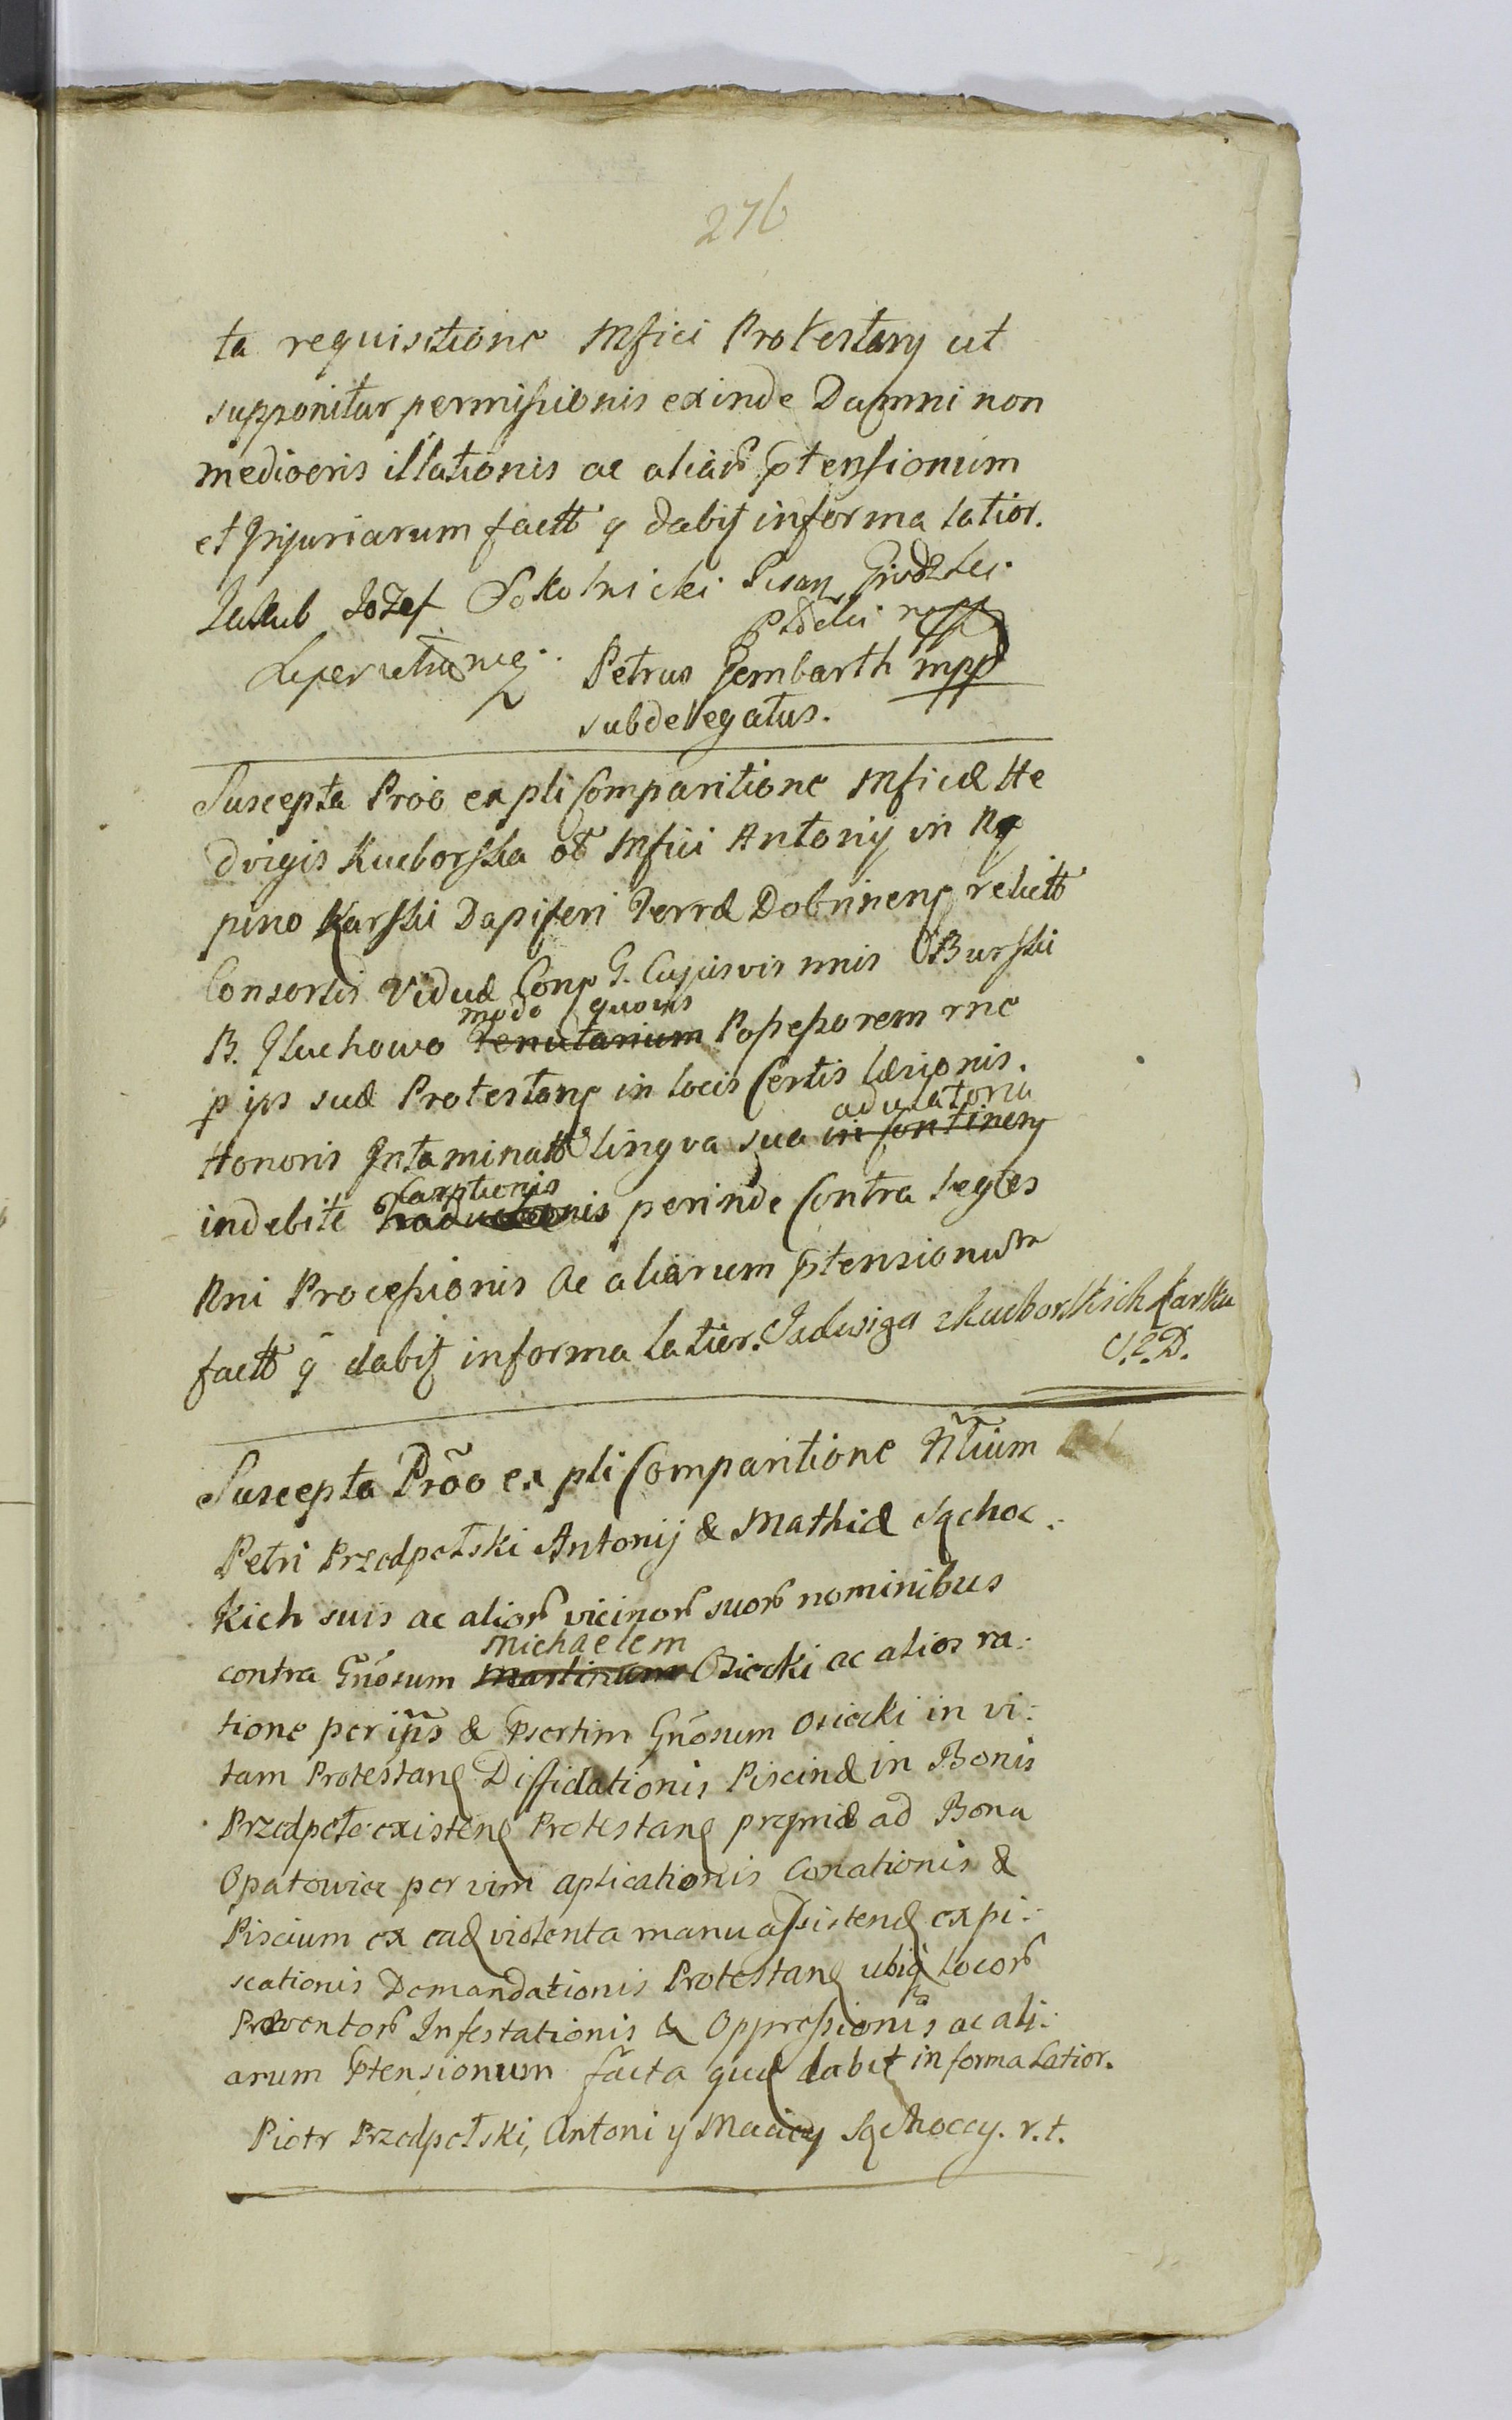 276
ta requisitione Mfici Protestanς ut
supponitur permissionis exinde Damni non
mediocris illationis ac aliaꝝ ptensionum
et Injuriarum factt q dabiţ in forma latior.
Jakub Jozef Sokolnicki Pisarz Grodzki
Petrus Gembarth mpp
subdelegatus.
Suscepta Prōo ex pli Comparitione Mficæ He
dvigis Kucborska ol Mfici Antonij in
pino Karski Dapiferi Terræ Dobrinenς relictt
Consortis Viduæ Conς G. Cujusvis nnis Burski
modo quovis
B. Gluchowo Tenutarium Possessorem rne
p ips suæ Protestanς in locis Certis læsionis.
adulatoria
Honoris Intaminatt lingva sua in Continenς
Carptionis
indebite Traductionis perinde Contra Leges
Rni Processionis Ac aliarum ptensionum
factt q dabiţ in forma latior. Jadwiga z Kucborskich Karska
Suscepta Prōo ex pli Comparitione Ñlium
Petri Przedpełski Antonij & Mathiæ Sęchoc:
kich suis ac alioꝝ vicinoꝝ suoꝝ nominibus
Michaelem
contra Gñosum Martinum Osiecki ac alios ra:
tione per ip̃s & psertim Gñosum Osiecki in vi:
tam Protestanς Diffidationis Piscinæ in Bonis
Przedpełe existenς Protestanς propriæ ad Bona
Opatowiec per vim aplicationis Conationis &
Piscium ex eadς violenta manu assistenς expi:
scationis Demandationis Protestanς ubiq locoꝝ
Proventoꝝ Infestationis & Oppressionis ac ali:
arum ptensionum facta quæ dabit in forma Latior.
Piotr Przedpełski, Antoni y Maciey Sęchoccy. r.t.